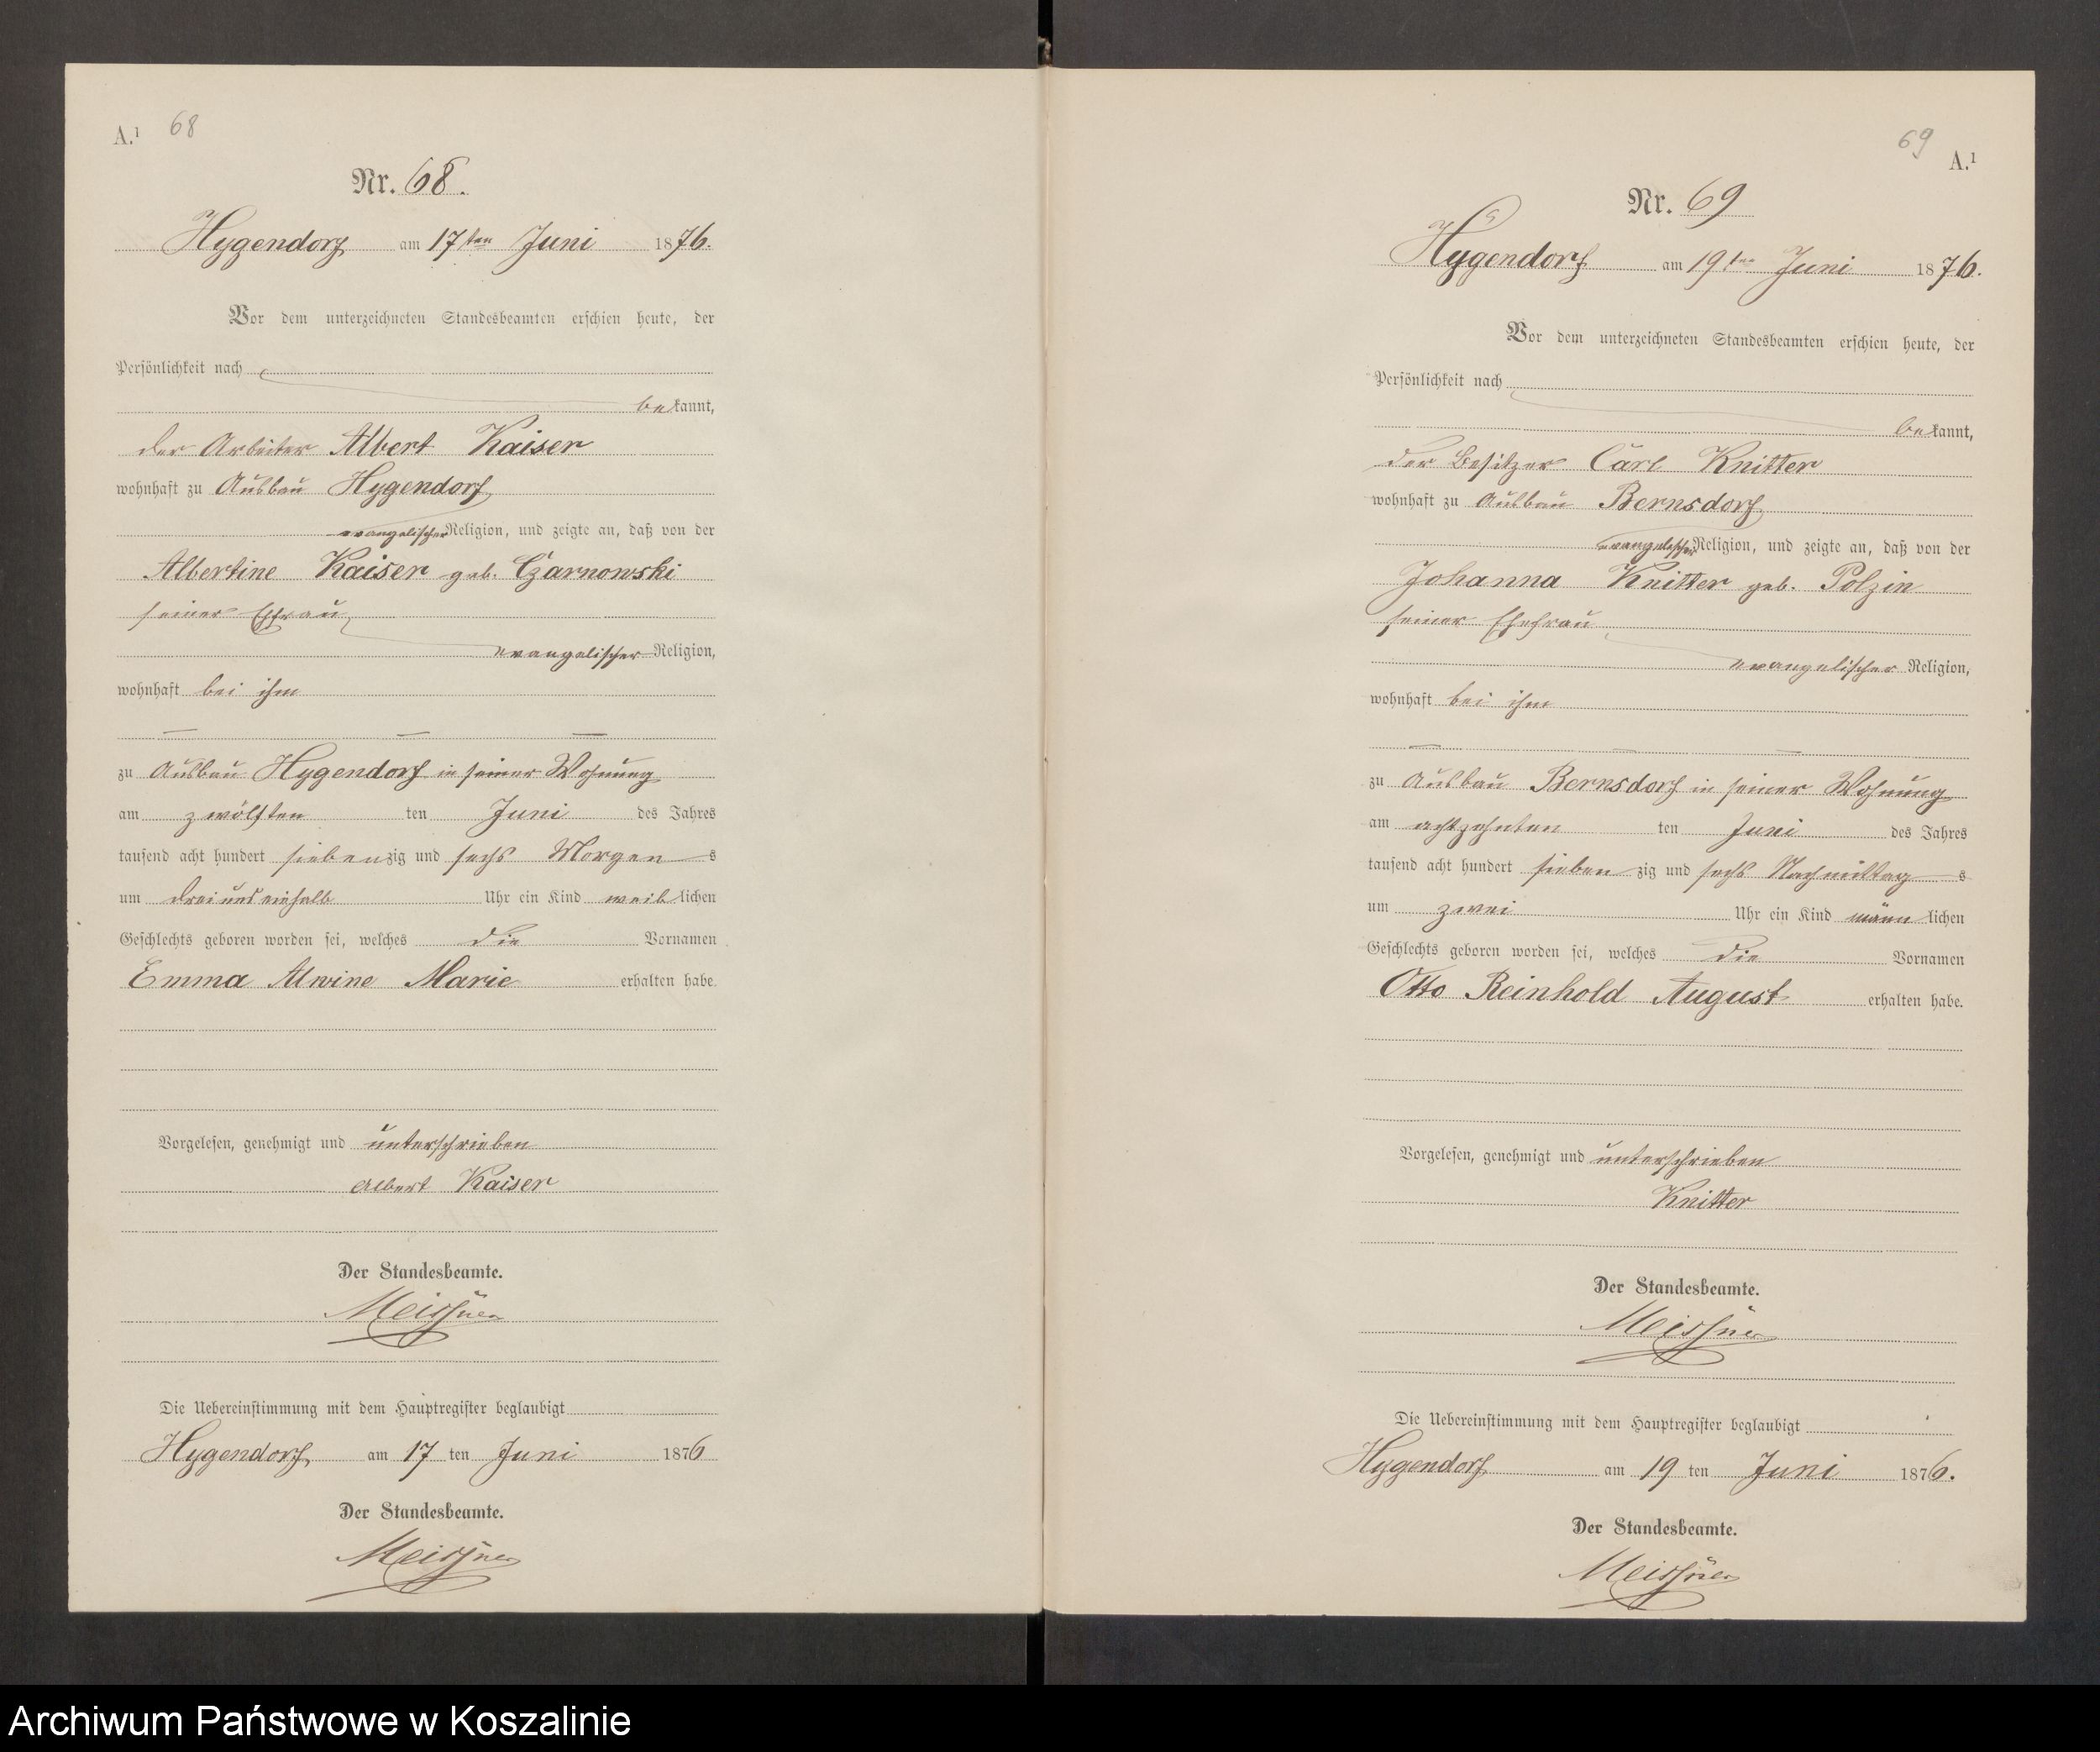 A.1 68
Nr. 68.
Hygendorf am 17ten Juni 1876.
Vor dem unterzeichneten Standesbeamten erschien heute, der
Persönlichkeit nach
bekannt,
der Arbeiter Albert Kaiser
wohnhaft zu Ausbau Hygendorf
evangelischer Religion, und zeigte an, daß von der
Albertine Kaiser geb. Czarnowski
seiner Ehfrau
evangelischer Religion,
wohnhaft bei ihm
zu Ausbau Hygendorf in seiner Wohnung
am zwölften ten Juni des Jahres
tausend acht hundert siebenzig und sechs Morgens
um drei und einhalb Uhr ein Kind weiblichen
Geschlechts geboren worden sei, welches die Vornamen
Emma Alwine Marie erhalten habe.
Vorgelesen, genehmigt und unterschrieben
Albert Kaiser
Der Standesbeamte.
Meissner
Die Uebereinstimmung mit dem Hauptregister beglaubigt
Hygendorf, am 17 ten Juni 1876
Der Standesbeamte.
Meissner
69
A.1
Nr. 69
Hygendorf am 19ten Juni 1876.
Vor dem unterzeichneten Standesbeamten erschien heute, der
Persönlichkeit nach
bekannt,
der Besitzer Carl Knitter
wohnhaft zu Ausbau Bernsdorf
evangelischer Religion, und zeigte an, daß von der
Johanna Knitter geb. Polzin
seiner Ehefrau
evangelischer Religion,
wohnhaft bei ihm
zu Ausbau Bernsdorf in seiner Wohnung
am achtzehnten ten Juni des Jahres
tausend acht hundert siebenzig und sechs Nachmittags
um zwei Uhr ein Kind männlichen
Geschlechts geboren worden sei, welches die Vornamen
Otto Reinhold August erhalten habe.
Vorgelesen, genehmigt und unterschrieben
Knitter
Der Standesbeamte.
Meissner
Die Uebereinstimmung mit dem Hauptregister beglaubigt
Hygendorf am 19 ten Juni 1876.
Der Standesbeamte.
Meissner
Archiwum Państwowe w Koszalinie